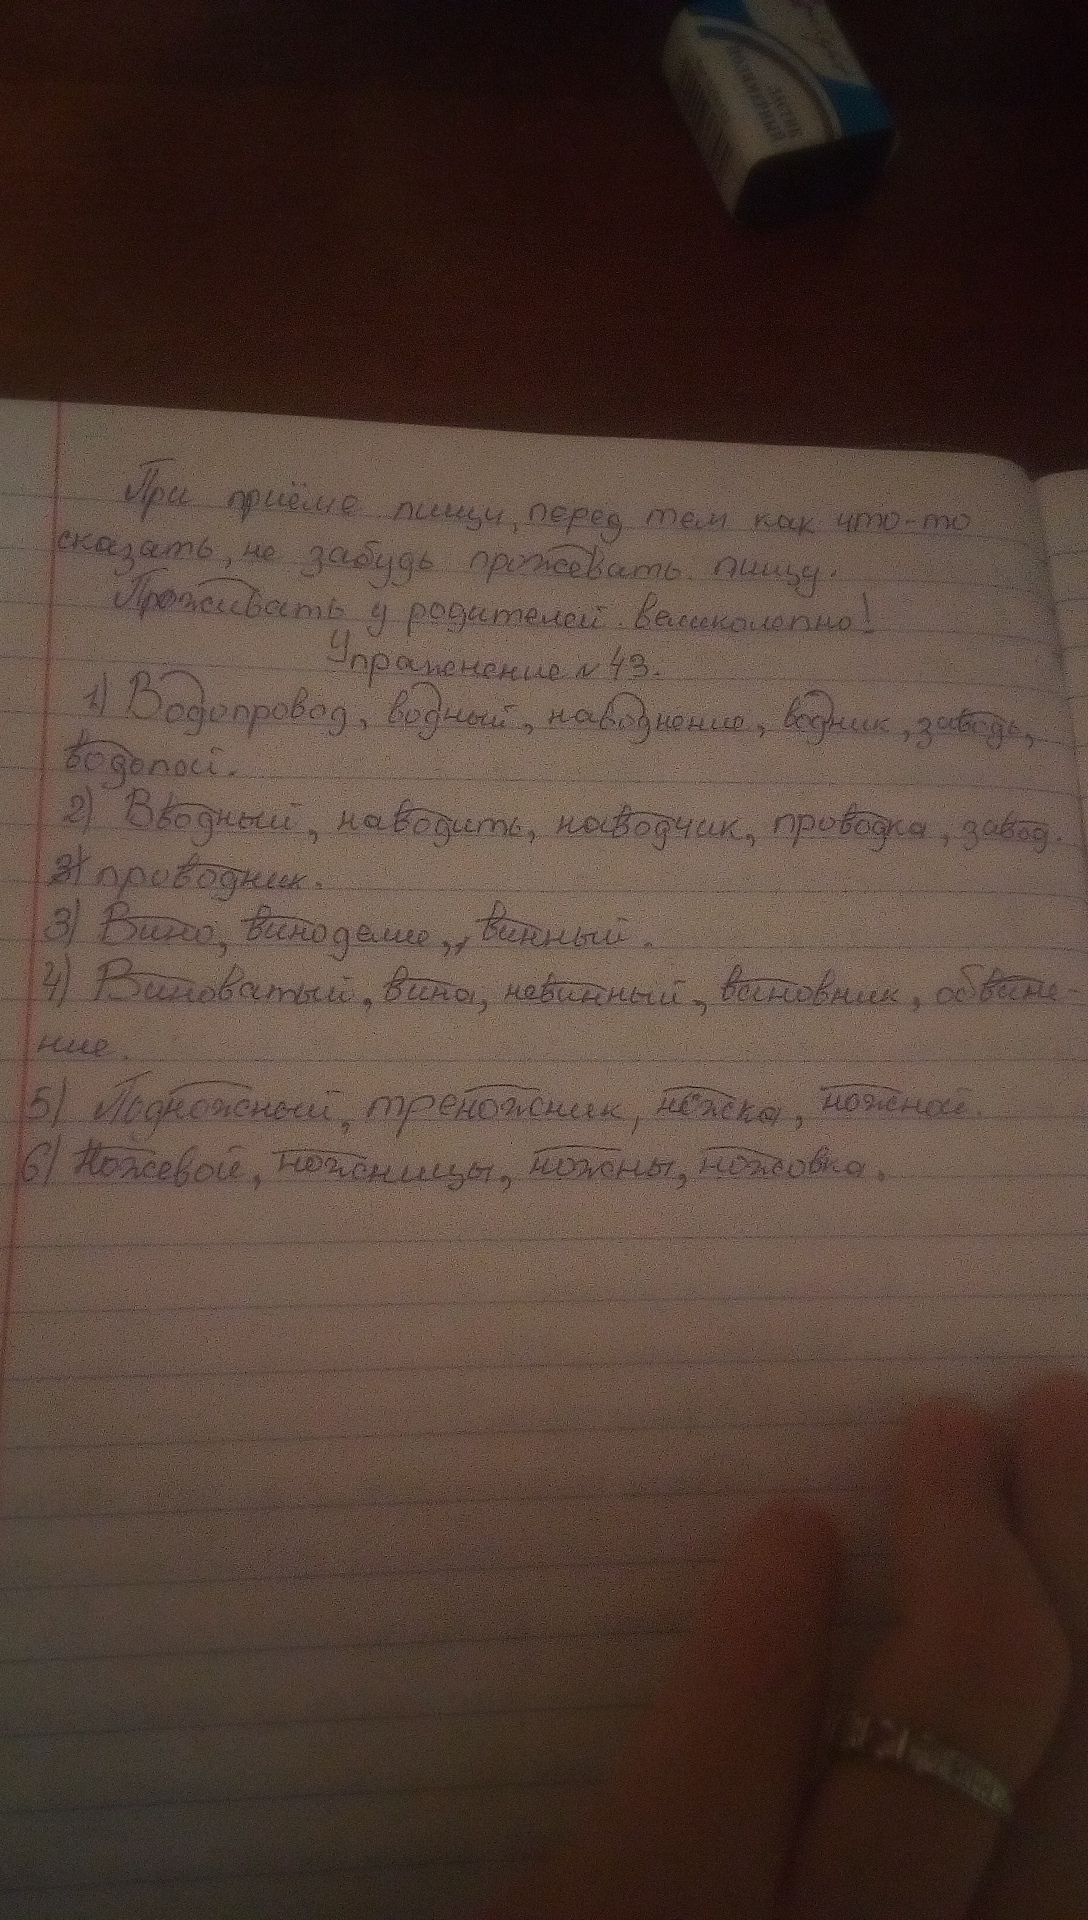 При приёме пищи, перед тем как что-то
сказать, не забудь прожевать пищу.
Проживать у родителей великолепно!
Упражнение № 43.
1) Водопровод, водный, наводнение, водник, заводь,
водопой.
2) Вводный, наводить, наводчик, проводка, завод.
проводник.
3) Вино, виноделие,, винный.
4) Виноватый, вина, невинный, виновник, обвине-
ние.
5) Подножный, треножник, ножка, ножной.
6) Ножевой, ножницы, ножны, ножовка.